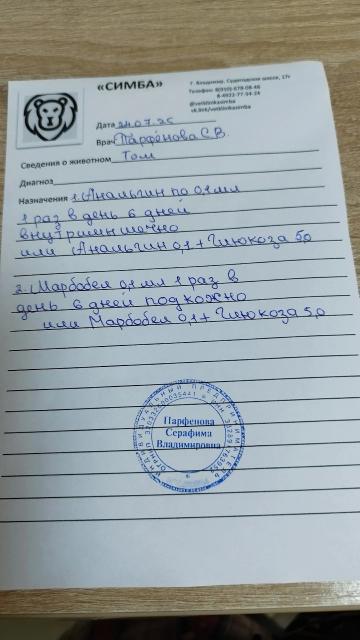 «СИМБА»
г. Владимир, Судогодское шоссе, 17г
Телефон: 8(910)-678-08-46
8-4922-77-54-24
@vetklinikasimba
vk.link/vetklinikasimba
Дата 24.07.25
Врач Парфёнова С.В.
Сведения о животном Том
Диагноз
Назначения 1. Анальгин по 0,1 мл
1 раз в день 6 дней
внутримышечно
или Анальгин 0,1 + Глюкоза 5,0
2. Марбобел 0,1 мл 1 раз в
день 6 дней подкожно
или Марбобел 0,1 + Глюкоза 5,0
ИНДИВИДУАЛЬНЫЙ ПРЕДПРИНИМАТЕЛЬ
Парфенова
Серафима
Владимировна